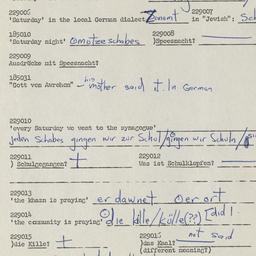 229006 229007
'Saturday' in the local German dialect Zonomt in "Jewish": Sch
185010 229008
'Saturday night' omotze schabes )Speesnacht?
229009
Ausdrücke mit Speesnacht?
185031
"Gott von Awrohom" - his mother said it in German
229010
'every Saturday we went to the synagogue'
jeden Schabes gingen wir zur Schul/gingen wir Schuln/
229011 229012
) Schulgegangen? + Was ist Schulklopfen?
229013
'the khazn is praying' er dawnet oer ort
229014
'the community is praying' die kille/külle(??) [did I
229015 229016 not said
)die Kille? + )das Kaal?
(different meaning?)